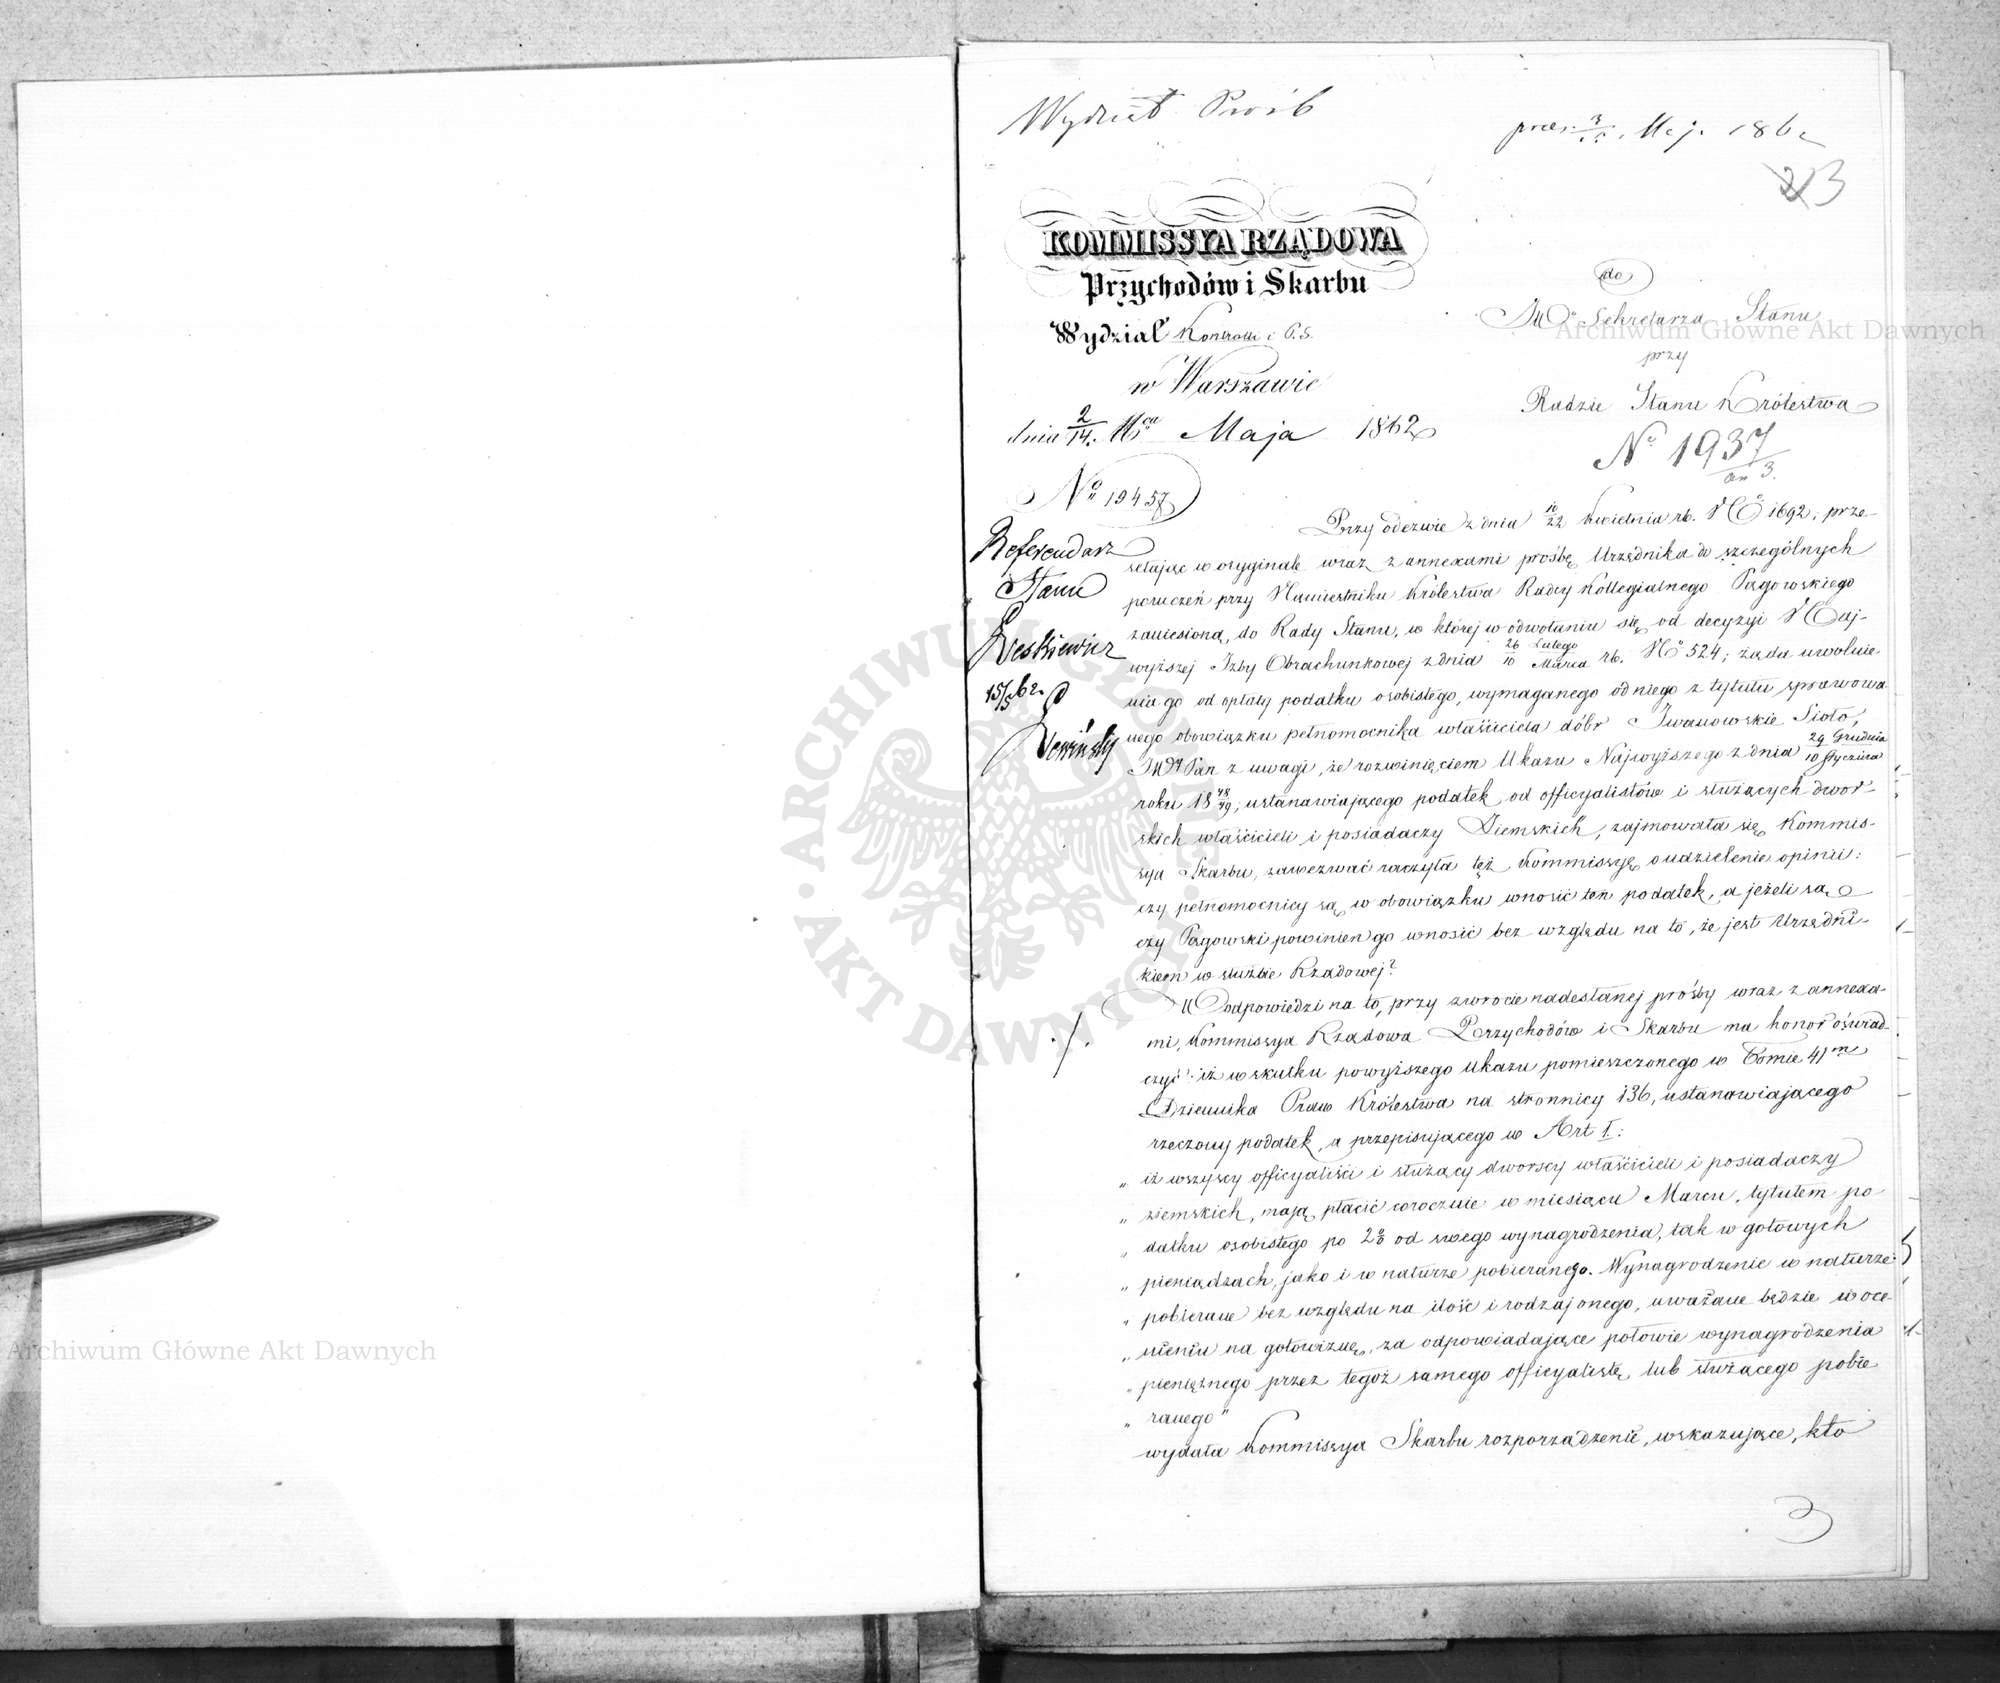 Wydział Próśb
praes. 3/15 Maj. 1862
2 3
KOMMISSYA RZĄDOWA
Przychodów i Skarbu
Wydział Kontrolli i P. S.
w Warszawie
dnia 2/14 Mca Maja 1862
No 19457
do
JWo Sekretarza Stanu
przy
Radzie Stanu Królestwa
No 1937
an 3.
Referendarz
Stanu
15/5 62.
Przy odezwie z dnia 10/22 Kwietnia rb. No 1692, prze-
syłając w oryginale wraz z annexami prośbę Urzędnika do szczególnych
poruczeń przy Namiestniku Królestwa Radcy Kollegialnego Pągowskiego
zaniesioną, do Rady Stanu, w której w odwołaniu się od decyzyi Naj-
wyższej Izby Obrachunkowej z dnia 26 Lutego/10 Marca rb. No 524; żąda uwolnie-
nia go od opłaty podatku osobistego, wymaganego od niego z tytułu sprawowa-
nego obowiązku pełnomocnika właściciela dóbr Iwanowskie Sioło,
JWy Pan z uwagi, że rozwinięciem Ukazu Najwyższego z dnia 29 Grudnia/10 Stycznia
roku 18 48/49, ustanawiającego podatek od officyalistów i służących dwor-
skich właścicieli i posiadaczy Ziemskich, zajmowała się Kommis-
sya Skarbu, zawezwać raczyła też Kommissyę o udzielenie opinii:
czy pełnomocnicy są w obowiązku wnosić ten podatek, a jeżeli są
czy Pągowski powinien go wnosić bez względu na to, że jest Urzędni-
kiem w służbie Rządowej?
W odpowiedzi na to, przy zwrocie nadesłanej prośby wraz z annexa-
mi, Kommissya Rządowa Przychodów i Skarbu ma honor oświad-
czyć: iż w skutku powyższego Ukazu pomieszczonego w Tomie 41m
Dziennika Praw Królestwa na stronnicy 136, ustanawiającego
rzeczony podatek, a przepisującego w Art I.:
„ iż wszyscy officyaliści i służący dworscy właścicieli i posiadaczy
„ ziemskich, mają płacić corocznie w miesiącu Marcu, tytułem po-
„ datku osobistego po 2% od swego wynagrodzenia, tak w gotowych
„ pieniądzach, jako i w naturze pobieranego. Wynagrodzenie w naturze
„ pobierane bez względu na ilość i rodzaj onego, uważane będzie w oce-
„ nieniu na gotowiznę, za odpowiadające połowie wynagrodzenia
„ pieniężnego przez tegoż samego officyalistę lub służącego pobie-
„ ranego"
wydała Kommissya Skarbu rozporządzenie, wskazujące, kto
3
ARCHIWUM GŁÓWNE AKT DAWNYCH
Archiwum Główne Akt Dawnych
Archiwum Główne Akt Dawnych